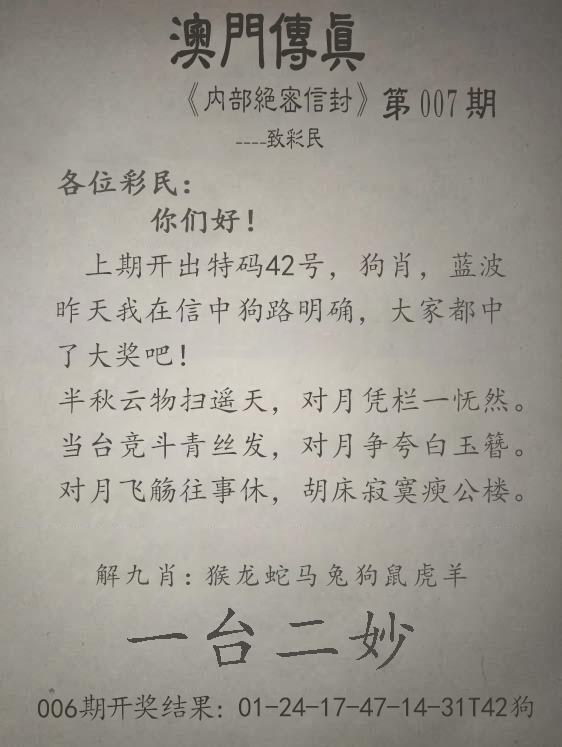 澳門傳眞
《内部絕密信封》第007期
----致彩民
各位彩民：
你们好！
上期开出特码42号，狗肖，蓝波
昨天我在信中狗路明确，大家都中
了大奖吧！
半秋云物扫遥天，对月凭栏一怃然。
当台竞斗青丝发，对月争夸白玉簪。
对月飞觞往事休，胡床寂寞瘐公楼。
解九肖：猴龙蛇马兔狗鼠虎羊
一台二妙
006期开奖结果：01-24-17-47-14-31T42狗